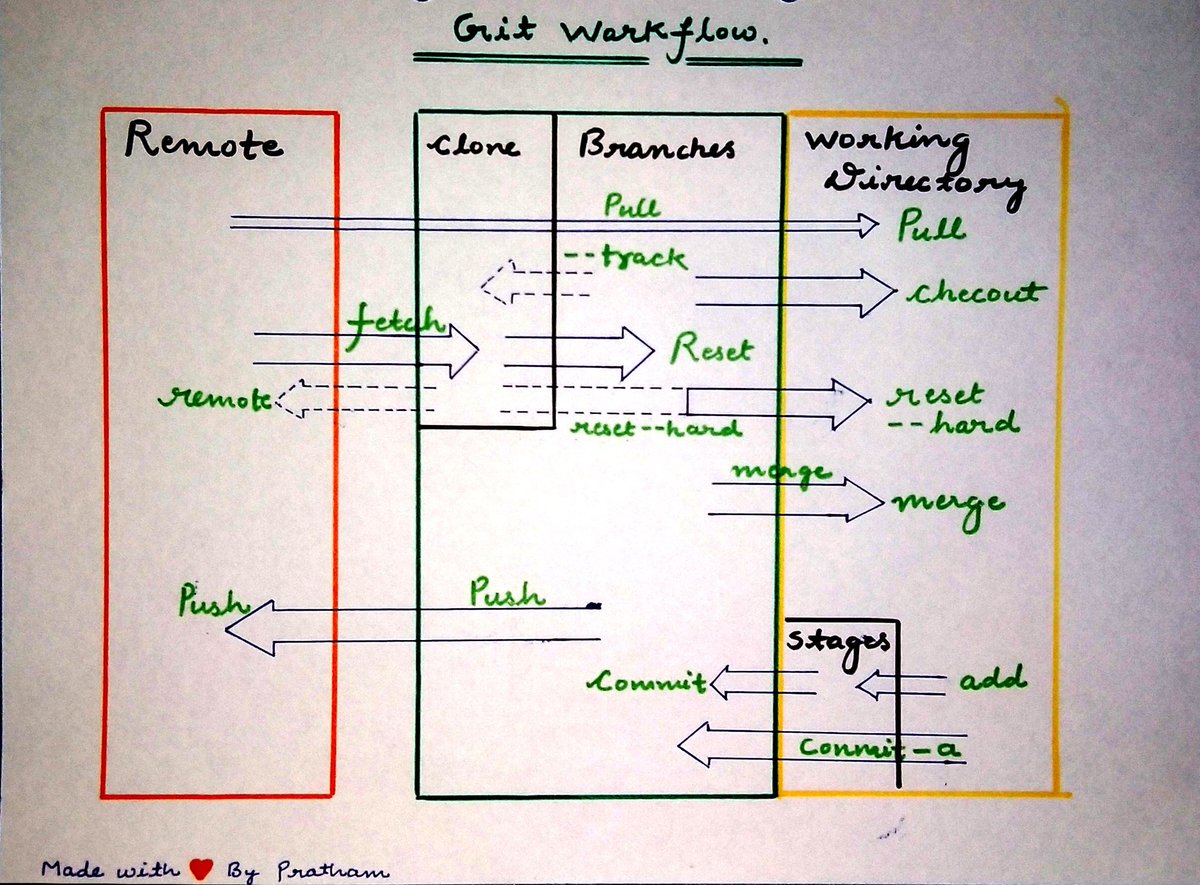 Git Workflow.
Remote
Clone
Branches
Working
Directory
Pull
Pull
--track
Checout
fetch
Reset
remote
reset
--hard
reset--hard
merge
merge
Push
Push
Stages
Commit
add
Commit-a
Made with ❤ By Pratham